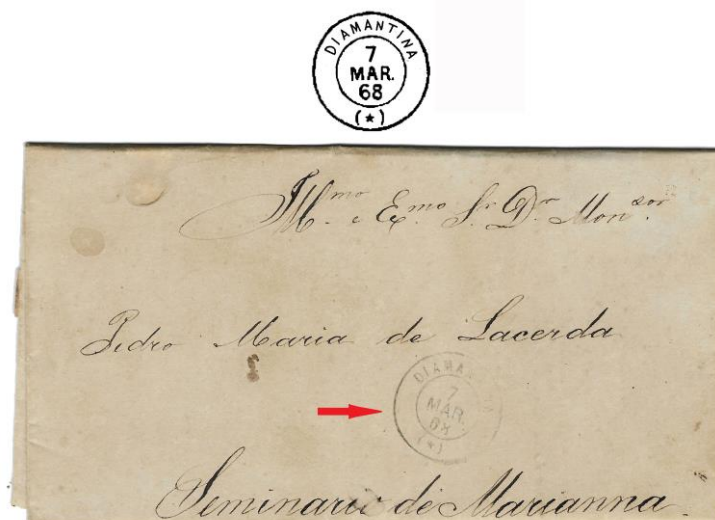 DIAMANTINA
7
MAR.
68
(★)
Illmo. e Exmo. Sr. Dr. Monsor.
Pedro Maria de Lacerda
DIAMA
7
MAR.
68
(★)
Seminario de Marianna.